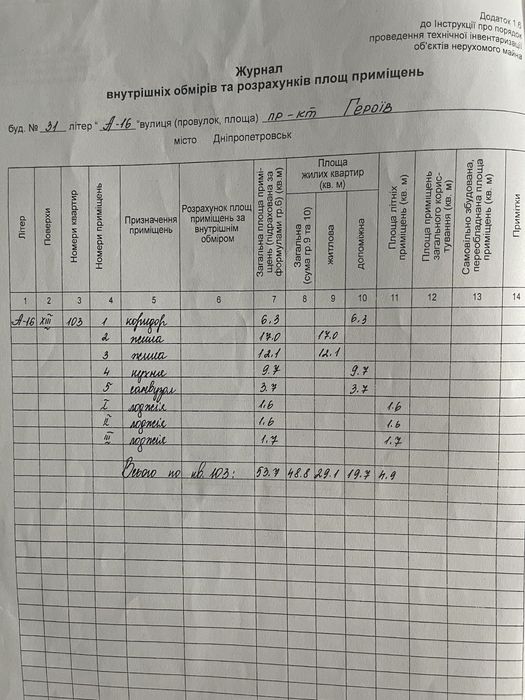 Додаток 1.6
до Інструкції про порядок
проведення технічної інвентаризації
об'єктів нерухомого майна
Журнал
внутрішніх обмірів та розрахунків площ приміщень
буд. № 31 літер "А-16" вулиця (провулок, площа) пр-кт Героїв
місто Дніпропетровськ
Літер
Поверхи
Номери квартир
Номери приміщень
Призначення приміщень
Розрахунок площ приміщень за внутрішнім обміром
Загальна площа приміщень (підрахована за формулами гр.6) (кв.м)
Площа жилих квартир (кв. м)
Загальна (сума гр 9 та 10)
житлова
допоміжна
Площа літніх приміщень (кв. м)
Площа приміщень загального користування (кв. м)
Самовільно збудована, переобладнана площа приміщень (кв. м)
Примітки
1 2 3 4 5 6 7 8 9 10 11 12 13 14
А-16 XIII 103 1 коридор 6.3 6.3
2 житла 17.0 17.0
3 житла 12.1 12.1
4 кухня 9.7 9.7
5 санвузол 3.7 3.7
I лоджія 1.6 1.6
II лоджія 1.6 1.6
III лоджія 1.7 1.7
Всього по кв. 103: 53.7 48.8 29.1 19.7 4.9